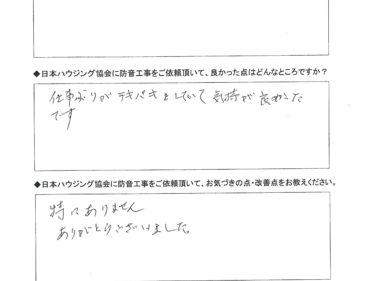 ◆日本ハウジング協会に防音工事をご依頼頂いて、良かった点はどんなところですか？
仕事ぶりがテキパキとしていて気持が良かった
です
◆日本ハウジング協会に防音工事をご依頼頂いて、お気づきの点・改善点をお教えください。
特にありません
ありがとうございました。